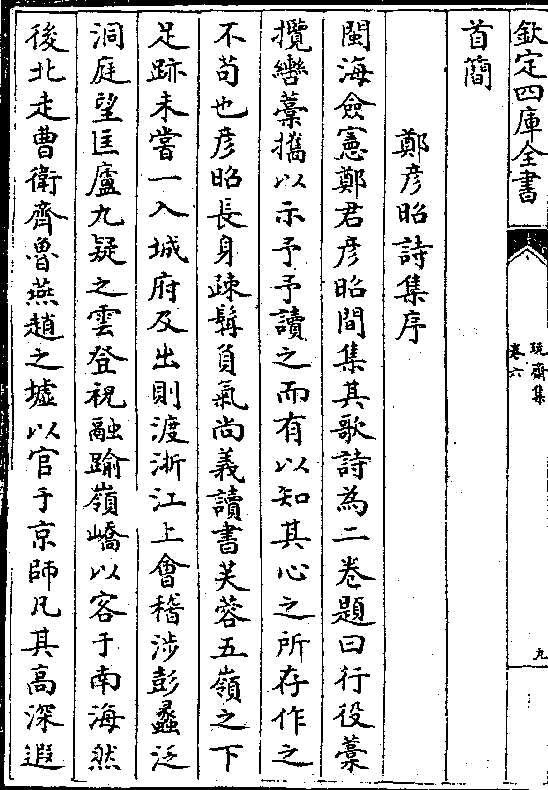 欽定四庫全書
玩齋集
卷六
九
首簡
鄭彥昭詩集序
閩海僉憲鄭君彥昭間集其歌詩為二卷題曰行役藁
攬轡藁攜以示予予讀之而有以知其心之所存作之
不苟也彥昭長身疎髯負氣尚義讀書芙蓉五嶺之下
足跡未嘗一入城府及出則渡浙江上會稽涉彭蠡泛
洞庭望匡廬九疑之雲登祝融踰嶺嶠以客于南海然
後北走曹衛齊魯燕趙之墟以官于京師凡其高深遐